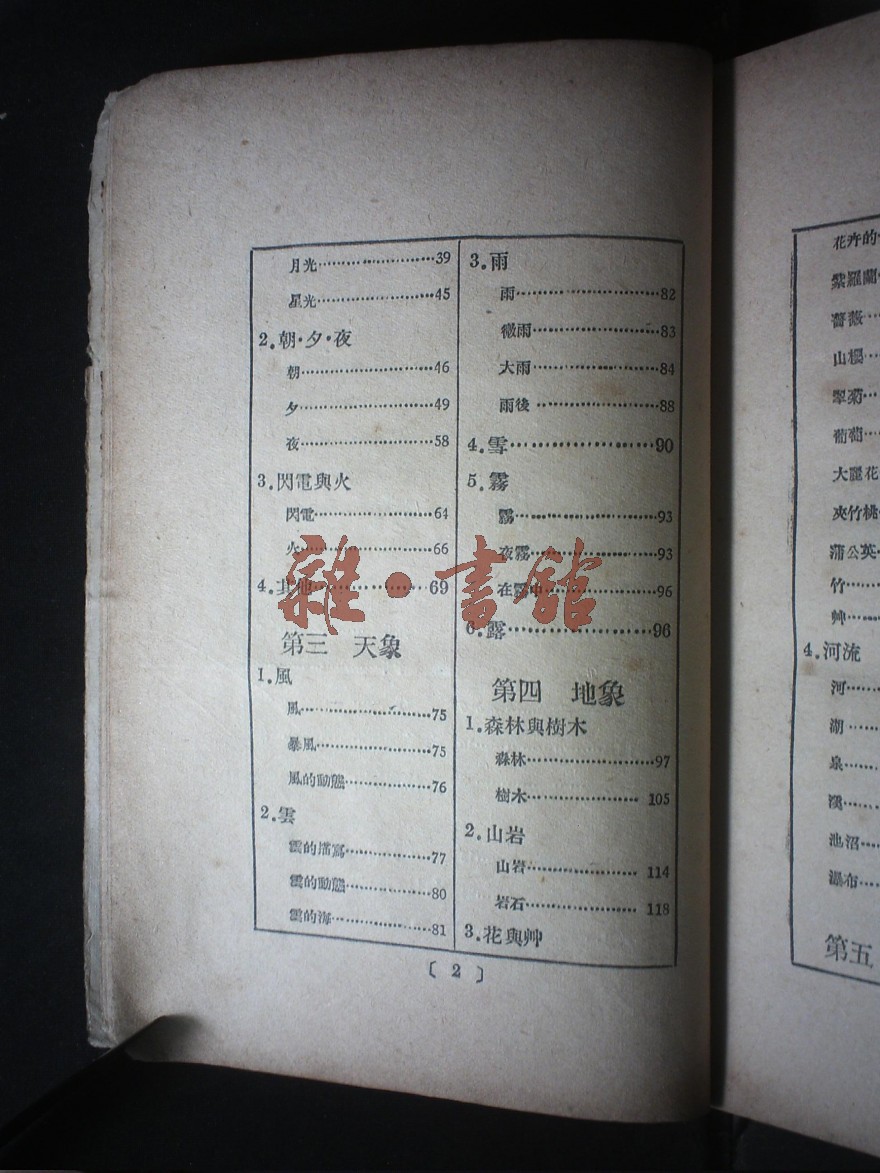 月光…………………39
星光…………………45
2.朝·夕·夜
朝……………………46
夕……………………49
夜……………………58
3.閃電與火
閃電…………………64
火……………………66
4.其他………………69
第三 天象
1.風
風……………………75
暴風…………………75
風的動態……………76
2.雲
雲的描寫……………77
雲的動態……………80
雲的海………………81
3.雨
雨……………………82
微雨…………………83
大雨…………………84
雨後…………………88
4.雪…………………90
5.霧
霧……………………93
夜霧…………………93
在霧中………………96
6.露…………………96
第四 地象
1.森林與樹木
森林…………………97
樹木…………………105
2.山岩
山岩…………………114
岩石…………………118
3.花與艸
〔2〕
雜·書館
花卉的
紫羅蘭
薔薇
山櫻
翠菊
葡萄
大麗花
夾竹桃
蒲公英
竹
艸
4.河流
河
湖
泉
溪
池沼
瀑布
第五